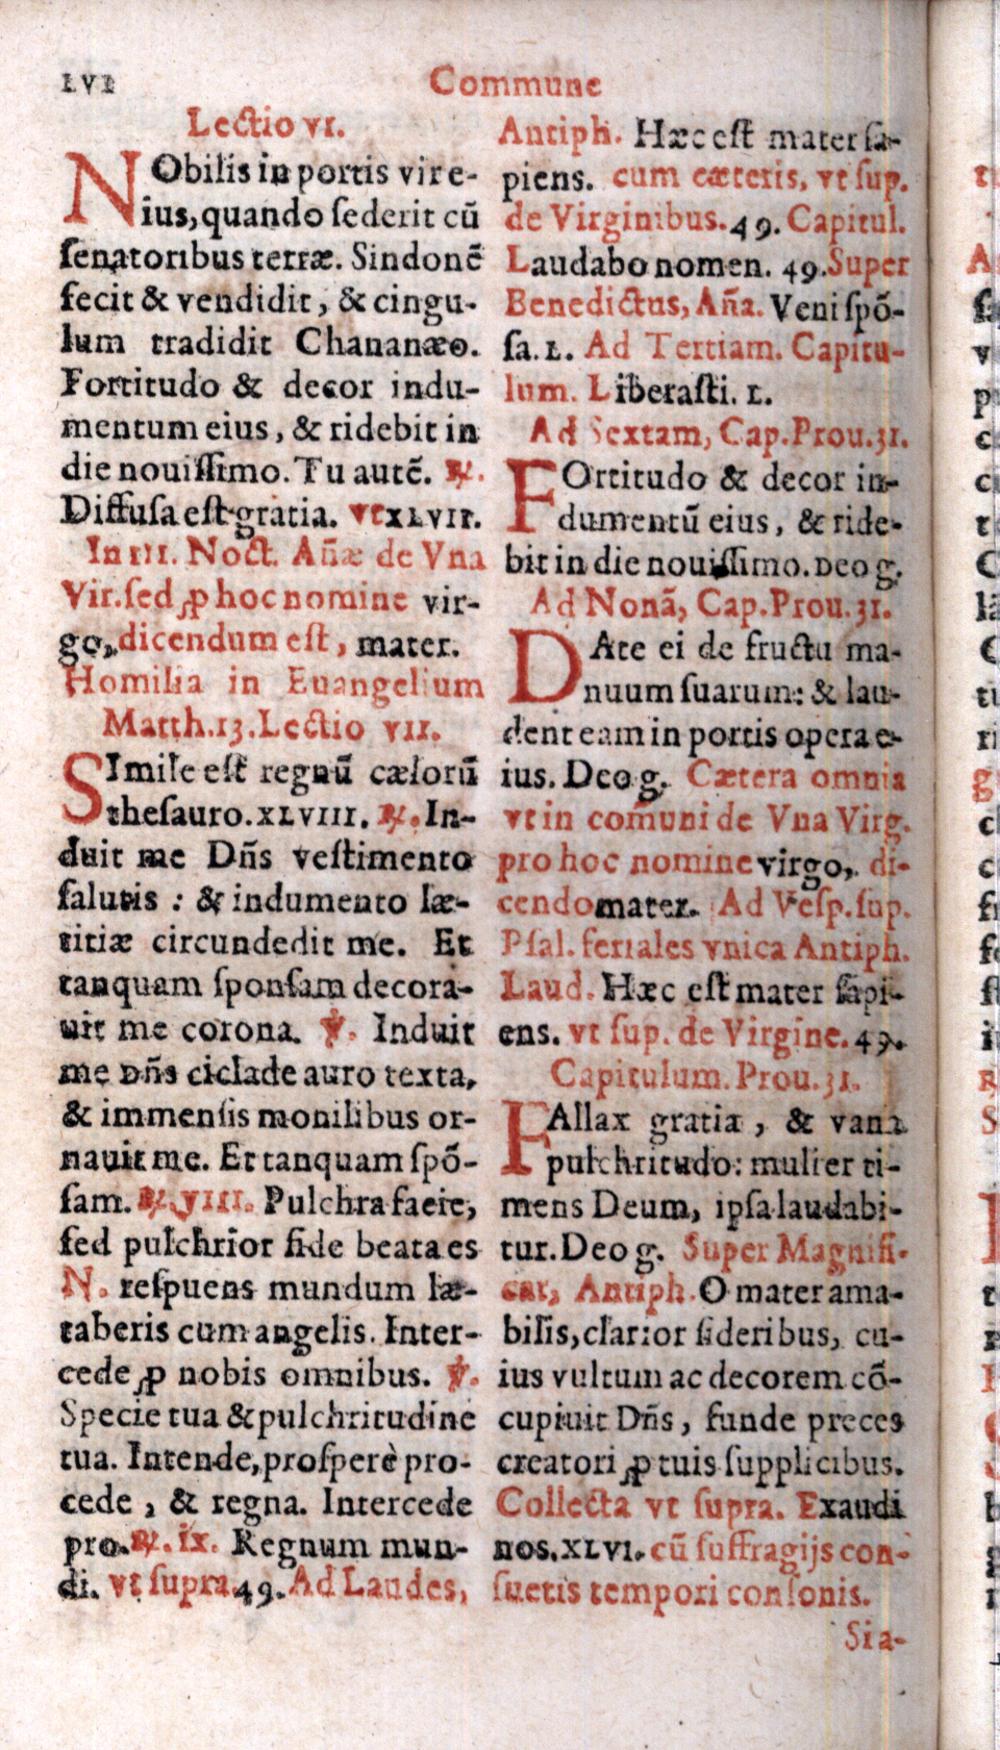 LVI
Commune
Lectio VI.
NObilis in portis vir e-
ius, quando sederit cũ
senatoribus terræ. Sindonẽ
fecit & vendidit, & cingu-
lum tradidit Chananæo.
Fortitudo & decor indu-
mentum eius, & ridebit in
die nouissimo. Tu autẽ. ℟.
Diffusa est gratia. vt XLVII.
In III. Noct. Añæ de Vna
Vir. sed ꝓ hoc nomine vir-
go, dicendum est, mater.
Homilia in Euangelium
Matth. 13. Lectio VII.
SImile est regnũ cælorũ
thesauro. XLVIII. ℟. In-
duit me Dñs vestimento
salutis : & indumento læ-
titiæ circundedit me. Et
tanquam sponsam decora-
uit me corona. ℣. Induit
me Dñs ciclade auro texta,
& immensis monilibus or-
nauit me. Et tanquam spõ-
sam. ℟. VIII. Pulchra facie,
sed pulchrior fide beata es
N. respuens mundum læ-
taberis cum angelis. Inter-
cede ꝓ nobis omnibus. ℣.
Specie tua & pulchritudine
tua. Intende, prosperè pro-
cede, & regna. Intercede
pro. ℟. IX. Regnum mun-
di. vt supra. 49. Ad Laudes,
Antiph. Hæc est mater sa-
piens. cum cæteris, vt sup.
de Virginibus. 49. Capitul.
Laudabo nomen. 49. Super
Benedictus, Aña. Veni spõ-
sa. L. Ad Tertiam. Capitu-
lum. Liberasti. L.
Ad Sextam, Cap. Prou. 31.
FOrtitudo & decor in-
dumentũ eius, & ride-
bit in die nouissimo. Deo g.
Ad Nonã, Cap. Prou. 31.
DAte ei de fructu ma-
nuum suarum: & lau-
dent eam in portis opera e-
ius. Deo g. Cætera omnia
vt in cõmuni de Vna Virg.
pro hoc nomine virgo, di-
cendo mater. Ad Vesp. sup.
Psal. feriales vnica Antiph.
Laud. Hæc est mater sapi-
ens. vt sup. de Virgine. 49.
Capitulum. Prou. 31.
FAllax gratia, & vana
pulchritudo: mulier ti-
mens Deum, ipsa laudabi-
tur. Deo g. Super Magnifi-
cat, Antiph. O mater ama-
bilis, clarior sideribus, cu-
ius vultum ac decorem cõ-
cupiuit Dñs, funde preces
creatori ꝓ tuis supplicibus.
Collecta vt supra. Exaudi
nos. XLVI. cũ suffragijs con-
suetis tempori consonis.
Sia-